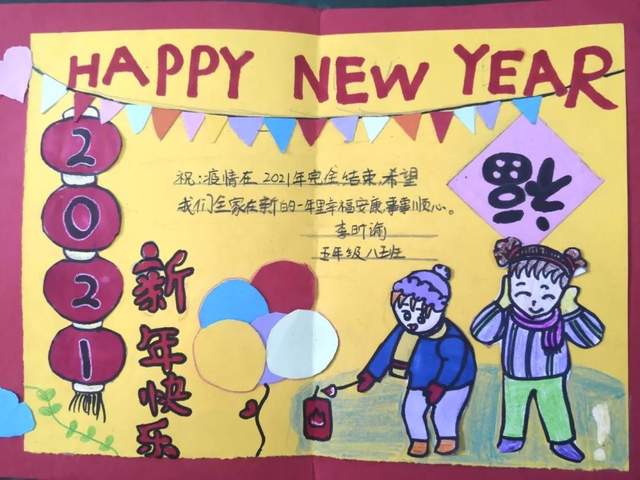 HAPPY NEW YEAR
2021
福
祝:疫情在2021年完全结束,希望
我们全家在新的一年里幸福安康事事顺心。
李昕瀚
五年级八班
新年快乐
!